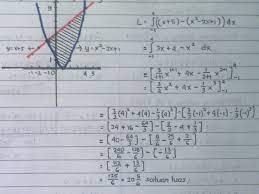 y=x+5
y=x²-2x+1
-2 -1 0
4 5
L = ∫₋₁⁴ ((x+5) - (x²-2x+1)) dx
= ∫₋₁⁴ 3x + 4 - x² dx
= [3/(1+1) x^(1+1) + 4x - 1/(2+1) x^(2+1)]₋₁⁴
= [3/2 x² + 4x - 1/3 x³]₋₁⁴
= [3/2(4)² + 4(4) - 1/3(4)³] - [3/2(-1)² + 4(-1) - 1/3(-1)³]
= [24 + 16 - 64/3] - [3/2 - 4 + 1/3]
= [40 - 64/3] -
= -
= +
= 125/6 = 20 5/6 satuan luas